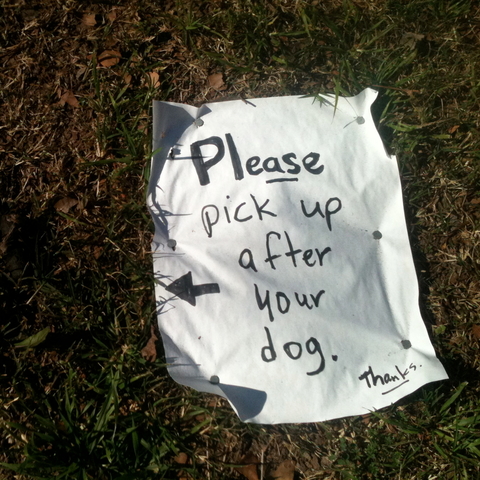 Please
pick up
after
your
dog.
Thanks.